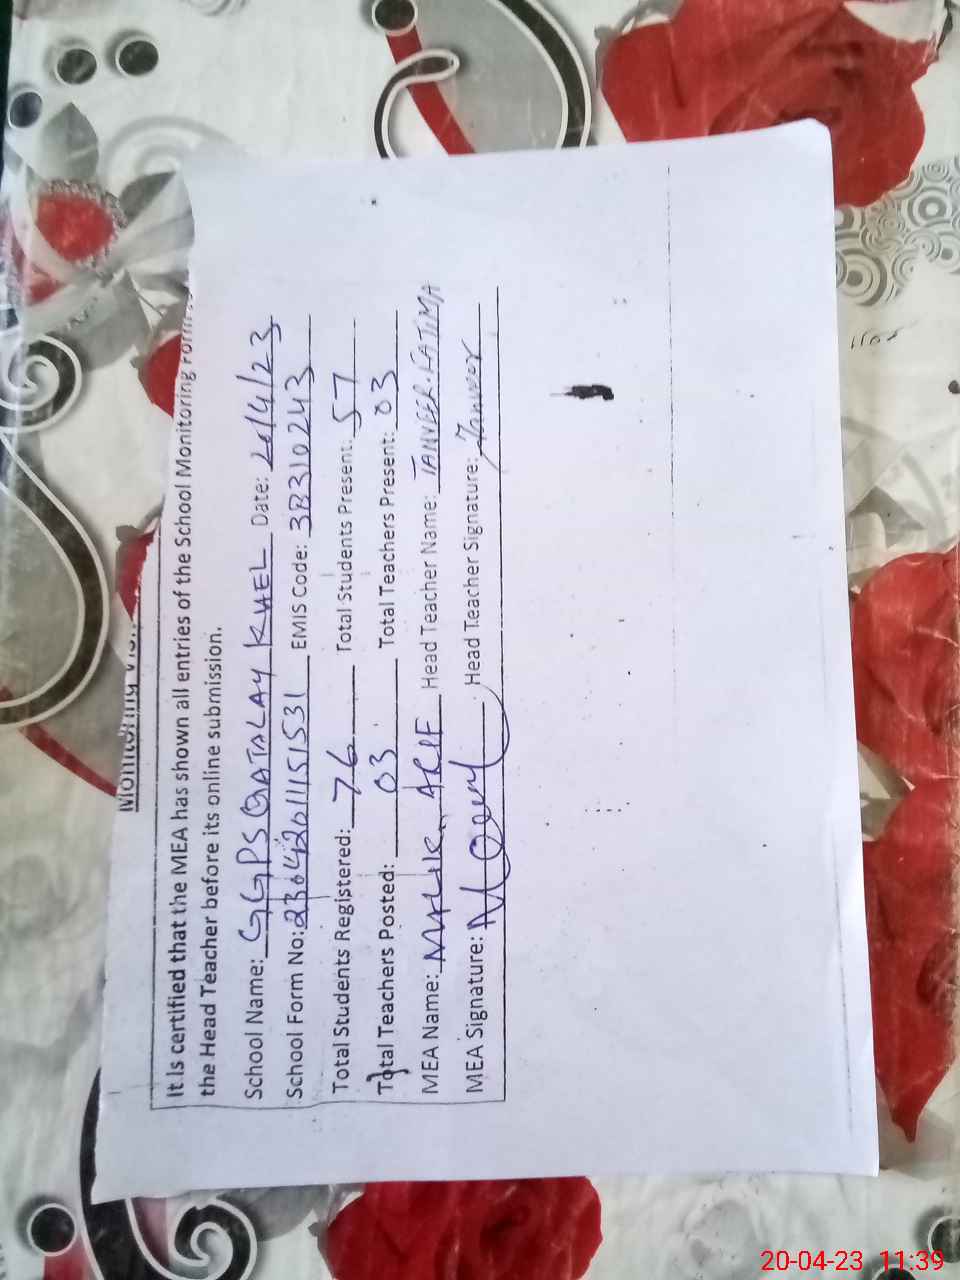 Monitoring Vis
It is certified that the MEA has shown all entries of the School Monitoring Form
the Head Teacher before its online submission.
School Name: GGPS GATALAY KHEL Date: 20/4/23
School Form No: 23042011151531 EMIS Code: 38310243
Total Students Registered: 76 Total Students Present: 57
Total Teachers Posted: 03 Total Teachers Present: 03
MEA Name: MALIK ARIF Head Teacher Name: TANVEER FATIMA
MEA Signature: Head Teacher Signature: Tanveer
20-04-23 11:39